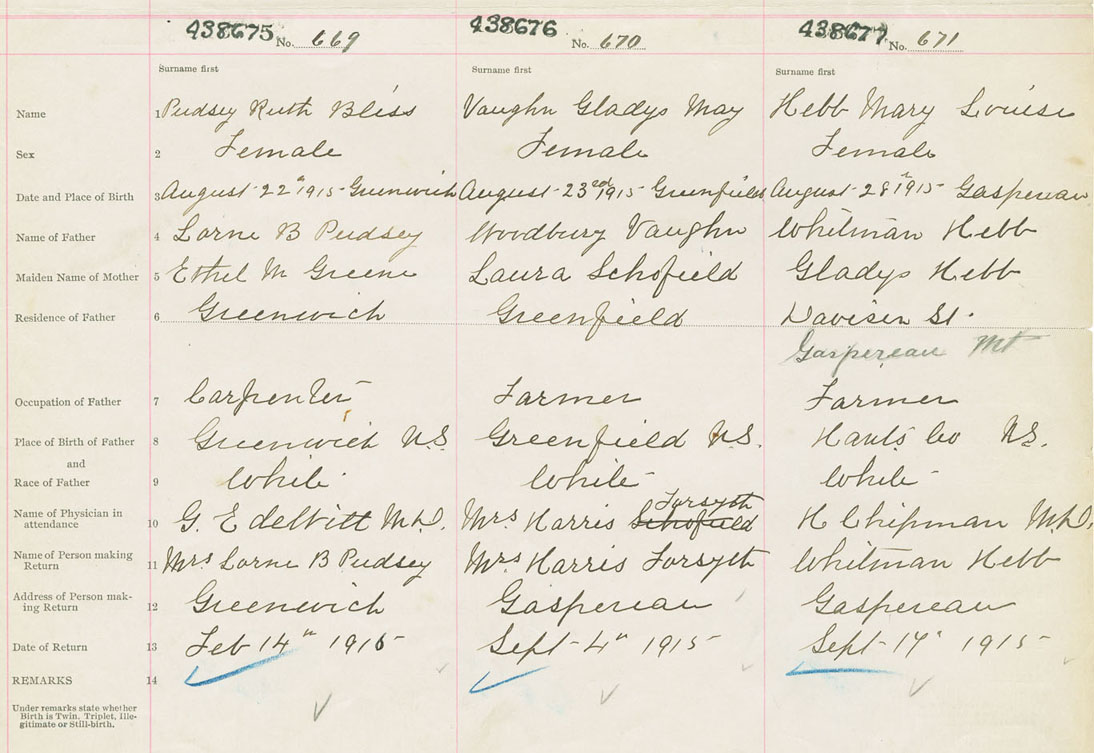 438675 No. 669 438676 No. 670 438677 No. 671
Surname first Surname first Surname first
Name 1 Pudsey Ruth Bliss Vaughn Gladys May Hebb Mary Louise
Sex 2 Female Female Female
Date and Place of Birth 3 August 22" 1915 - Greenwich August 23rd 1915 Greenfield August 28th 1915 Gaspereau
Name of Father 4 Lorne B Pudsey Woodbury Vaughn Whitman Hebb
Maiden Name of Mother 5 Ethel M Greene Laura Schofield Gladys Hebb
Residence of Father 6 Greenwich Greenfield Davison St.
Gaspereau Mt
Occupation of Father 7 Carpenter Farmer Farmer
Place of Birth of Father 8 Greenwich N.S. Greenfield N.S. Hants Co N.S.
and
Race of Father 9 White White White
Forsyth
Name of Physician in
attendance 10 G. E deWitt M.D. Mrs Harris Schofield H Chipman M.D.
Name of Person making
Return 11 Mrs Lorne B Pudsey Mrs Harris Forsyth Whitman Hebb
Address of Person mak-
ing Return 12 Greenwich Gaspereau Gaspereau
Date of Return 13 Feb 14" 1916 Sept 4" 1915 Sept 17" 1915
REMARKS 14
Under remarks state whether
Birth is Twin, Triplet, Ille-
gitimate or Still-birth.